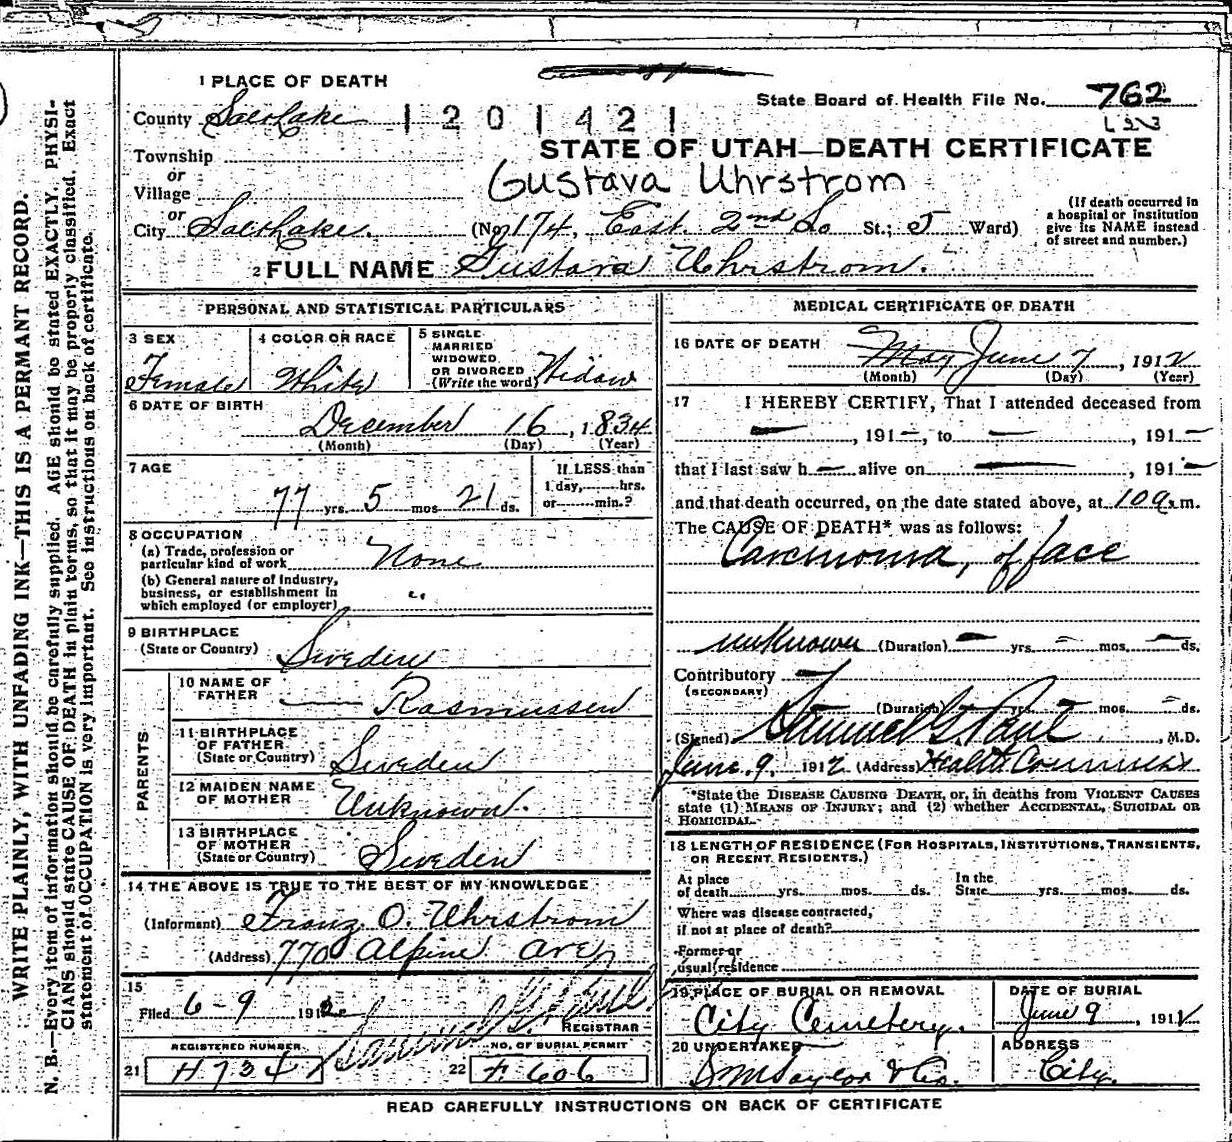 1 PLACE OF DEATH
County Salt Lake
1201421
State Board of Health File No. 762
STATE OF UTAH—DEATH CERTIFICATE
Township
or
Village
Gustava Uhrstrom
or
City Salt Lake. (No. 174, East 2nd So St.; 5 Ward)
(If death occurred in a hospital or institution give its NAME instead of street and number.)
2 FULL NAME Gustava Uhrstrom.
PERSONAL AND STATISTICAL PARTICULARS
3 SEX
Female
4 COLOR OR RACE
White
5 SINGLE
MARRIED
WIDOWED
OR DIVORCED
(Write the word) Widow
6 DATE OF BIRTH
December 16, 1834
(Month) (Day) (Year)
7 AGE
77 yrs. 5 mos. 21 ds.
If LESS than
1 day, hrs.
or min.?
8 OCCUPATION
(a) Trade, profession or
particular kind of work None
(b) General nature of industry,
business, or establishment in
which employed (or employer) "
9 BIRTHPLACE
(State or Country) Sweden
PARENTS
10 NAME OF
FATHER — Rasmussen
11 BIRTHPLACE
OF FATHER
(State or Country) Sweden
12 MAIDEN NAME
OF MOTHER Unknown.
13 BIRTHPLACE
OF MOTHER
(State or Country) Sweden
14 THE ABOVE IS TRUE TO THE BEST OF MY KNOWLEDGE
(Informant) Franz O. Uhrstrom
(Address) 770 Alpine Ave
15
Filed 6-9 1912
REGISTRAR
REGISTERED NUMBER
21 H734
NO. OF BURIAL PERMIT
22 F 606
MEDICAL CERTIFICATE OF DEATH
16 DATE OF DEATH May June 7, 1912
(Month) (Day) (Year)
17 I HEREBY CERTIFY, That I attended deceased from
—, 191—, to —, 191—
that I last saw h— alive on —, 191—
and that death occurred, on the date stated above, at 10 a. m.
The CAUSE OF DEATH* was as follows:
Carcinoma, of face
unknown (Duration) — yrs. — mos. — ds.
Contributory —
(SECONDARY)
(Duration) yrs. — mos. — ds.
(Signed) Samuel G. Paul, M.D.
June 9, 1912 (Address) Health Commiss
*State the DISEASE CAUSING DEATH, or, in deaths from VIOLENT CAUSES
state (1) MEANS OF INJURY; and (2) whether ACCIDENTAL, SUICIDAL OR
HOMICIDAL.
18 LENGTH OF RESIDENCE (FOR HOSPITALS, INSTITUTIONS, TRANSIENTS,
OR RECENT RESIDENTS.)
At place
of death yrs. mos. ds.
In the
State yrs. mos. ds.
Where was disease contracted,
if not at place of death?
Former or
usual residence
19 PLACE OF BURIAL OR REMOVAL
City Cemetery.
DATE OF BURIAL
June 9, 1912
20 UNDERTAKER
S M Taylor & Co.
ADDRESS
City.
READ CAREFULLY INSTRUCTIONS ON BACK OF CERTIFICATE
WRITE PLAINLY, WITH UNFADING INK—THIS IS A PERMANT RECORD.
N. B.—Every item of information should be carefully supplied. AGE should be stated EXACTLY. PHYSI-
CIANS should state CAUSE OF DEATH in plain terms, so that it may be properly classified. Exact
statement of OCCUPATION is very important. See instructions on back of certificate.